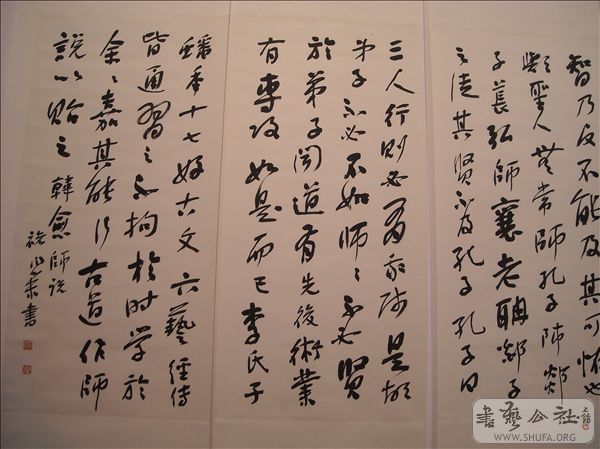 智乃反不能及其可怪也
歟聖人無常師孔子師郯
子萇弘師襄老聃郯子
之徒其賢不及孔子孔子曰
三人行則必有我師是故
弟子不必不如師〻不必賢
於弟子聞道有先後術業
有專攻如是而已李氏子
蟠年十七好古文六藝經傳
皆通習之不拘於时学於
余〻嘉其能行古道作師
説以貽之韓愈師説
書
書藝公社
WWW.SHUFA.ORG